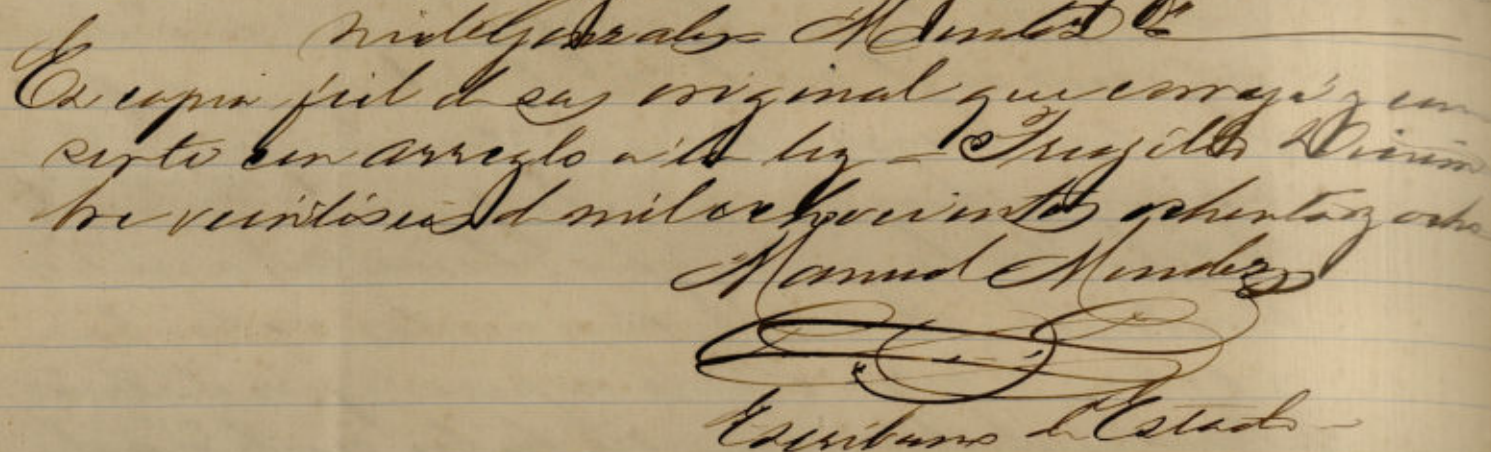 Gonzales = M
Es copia fiel d su original que corregí y con
serté con arreglo á la ley = Trujillo Diciem
bre veintiseis d mil ochocientos ochenta y ocho
Manuel Mendez
Escribano d Estado